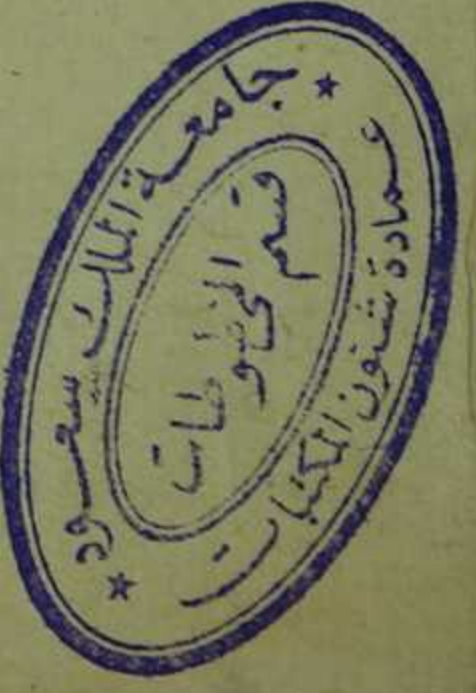 جامعة الملك سعود
عمادة شئون المكتبات
قسم
المخطوطات